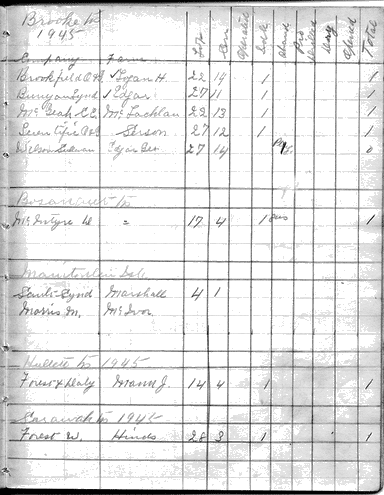 Brooke Tp
1945
Company Farm Lot Con Operated Dark Aband Pro Drilled Dry Opened Total
Brookfield O&G Logan H 22 14 1 1
Bunyan Synd Edgar 27 11 1 1
McBeah C.E. McLachlan 22 13 1 1
Scientific O&G Stetson 27 12 1 1
Wilson Edgar Geo 27 14 0
Bosanquet Tp
McIntyre W " 17 4 1 Gas 1
Manitoulin Isle
Synd Marshall 4 1
Morris M. McIvor
Hullett Tp 1945
Forest & Daly Mann J. 14 4 1 1
Sarawak Tp 1945
Forest W. Hinds 28 3 1 1